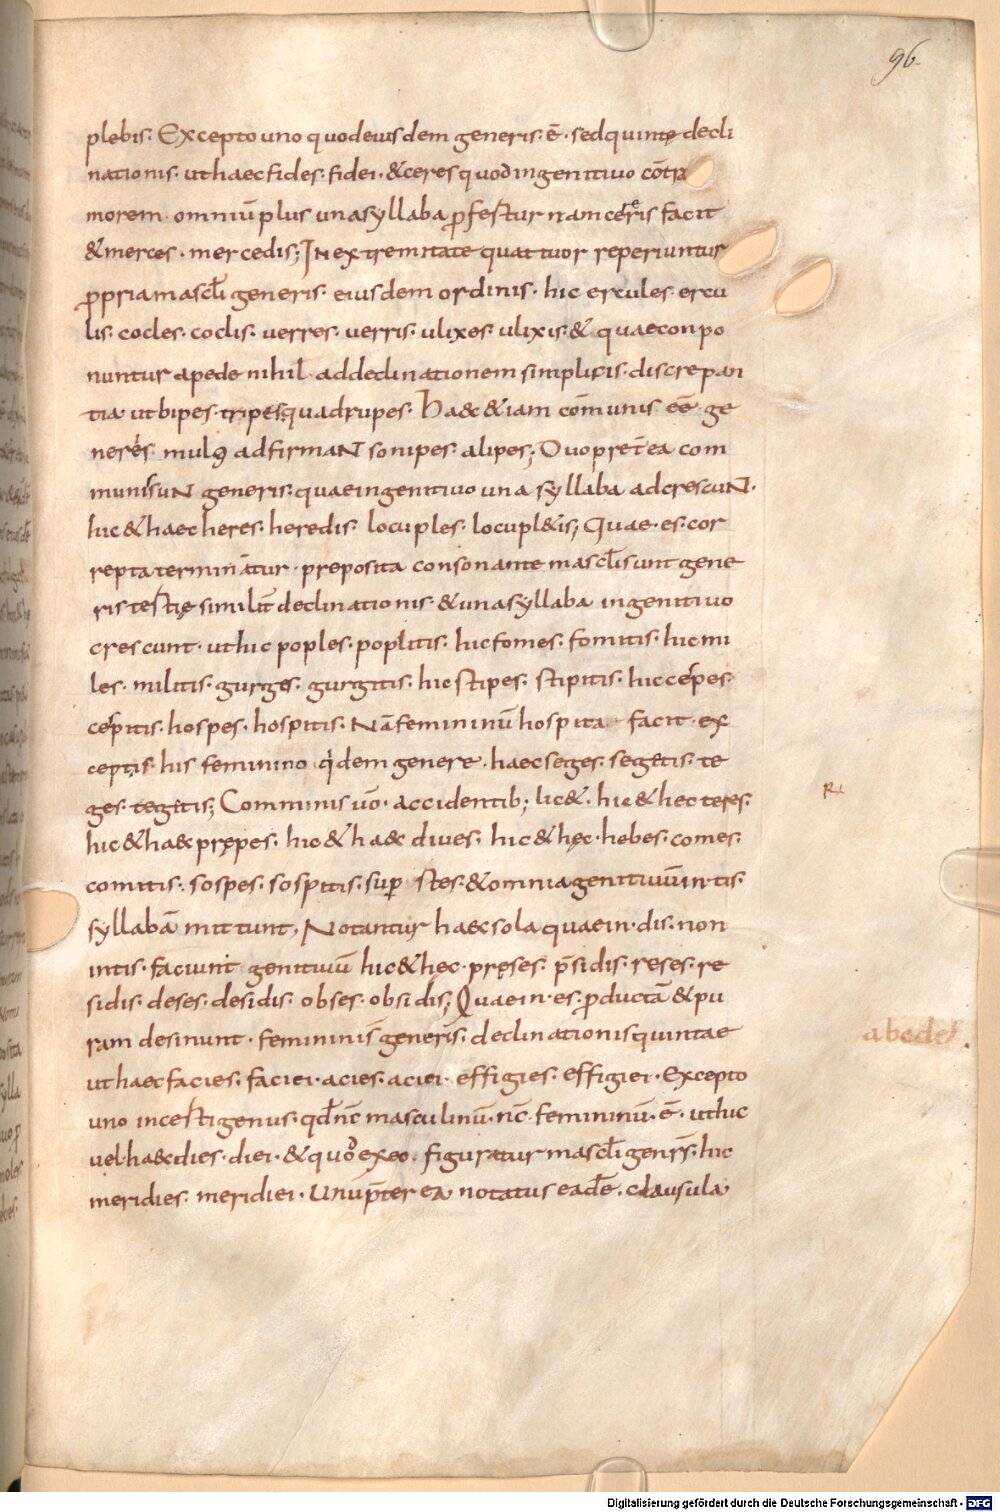 96
plebis. Excepto uno quod eiusdem generis. ē. sed quintę decli
nationis. ut haec fides. fidei. & ceres quod in genitivo cōtra
morem omniū plus una syllaba ꝓfertur nam cereris facit
& merces. mercedis; In extremitate quattuor reperiuntur
ꝓpria mascl̄i generis. eiusdem ordinis. hic ercules ercu
lis. cocles. coclis. verres. verris. ulixes. ulixis. & quae conpo
nuntur a pede nihil ad declinationem simplicis. discrepan
tia ut bipes. tripes quadrupes. Haec &iam cōmunis eē ge
neris. multi adfirmant sonipes. alipes; Duo pret̄ea com
munis sunt generis. quae in genitivo una syllaba adcrescunt.
hic & haec heres. heredis. locuples. locupl&is; Quae. es. cor
repta terminātur. preposita consonante mascl̄i sunt gene
ris tertię similit̄ declinationis. & una syllaba in genitivo
crescunt. ut hic poples. poplitis. hic fomes. fomitis. hic mi
les. militis. gurges. gurgitis. hic stipes. stipitis. hic cespes.
cespitis. hospes. hospitis. Nā femininū hospita facit. ex
ceptis his feminino q̇dem genere. haec seges. segetis. te
ges. tegetis; Comminis ūo. accidentib; lic&. hic & hec teres.
hic & haec prępes. hic & haec dives. hic & hęc. hebes. comes.
comitis. sospes. sospitis. suꝑstes. & omnia genitivū in. tis.
syllabā mittunt; Notantur haec sola quae in. dis. non
in tis. faciunt genitivū hic & hęc. pręses. p̄sidis. reses. re
sidis. deses. desidis. obses. obsidis; Quae in. es. ꝓductā & pu
ram desinunt. feminini generis. declinationis quintae
ut haec facies. faciei. acies. aciei. effigies. effigiei. Excepto
uno incerti genus. qd̄ nc̄ masculinū. nc̄ femininū. ē. ut hic
vel haec dies. diei. & quod ex eo. figuratur mascl̄i generis. hic
meridies. meridiei. Unū p̄ter ea notatus eadē. clausula
R
abcdef
Digitalisierung gefördert durch die Deutsche Forschungsgemeinschaft - DFG